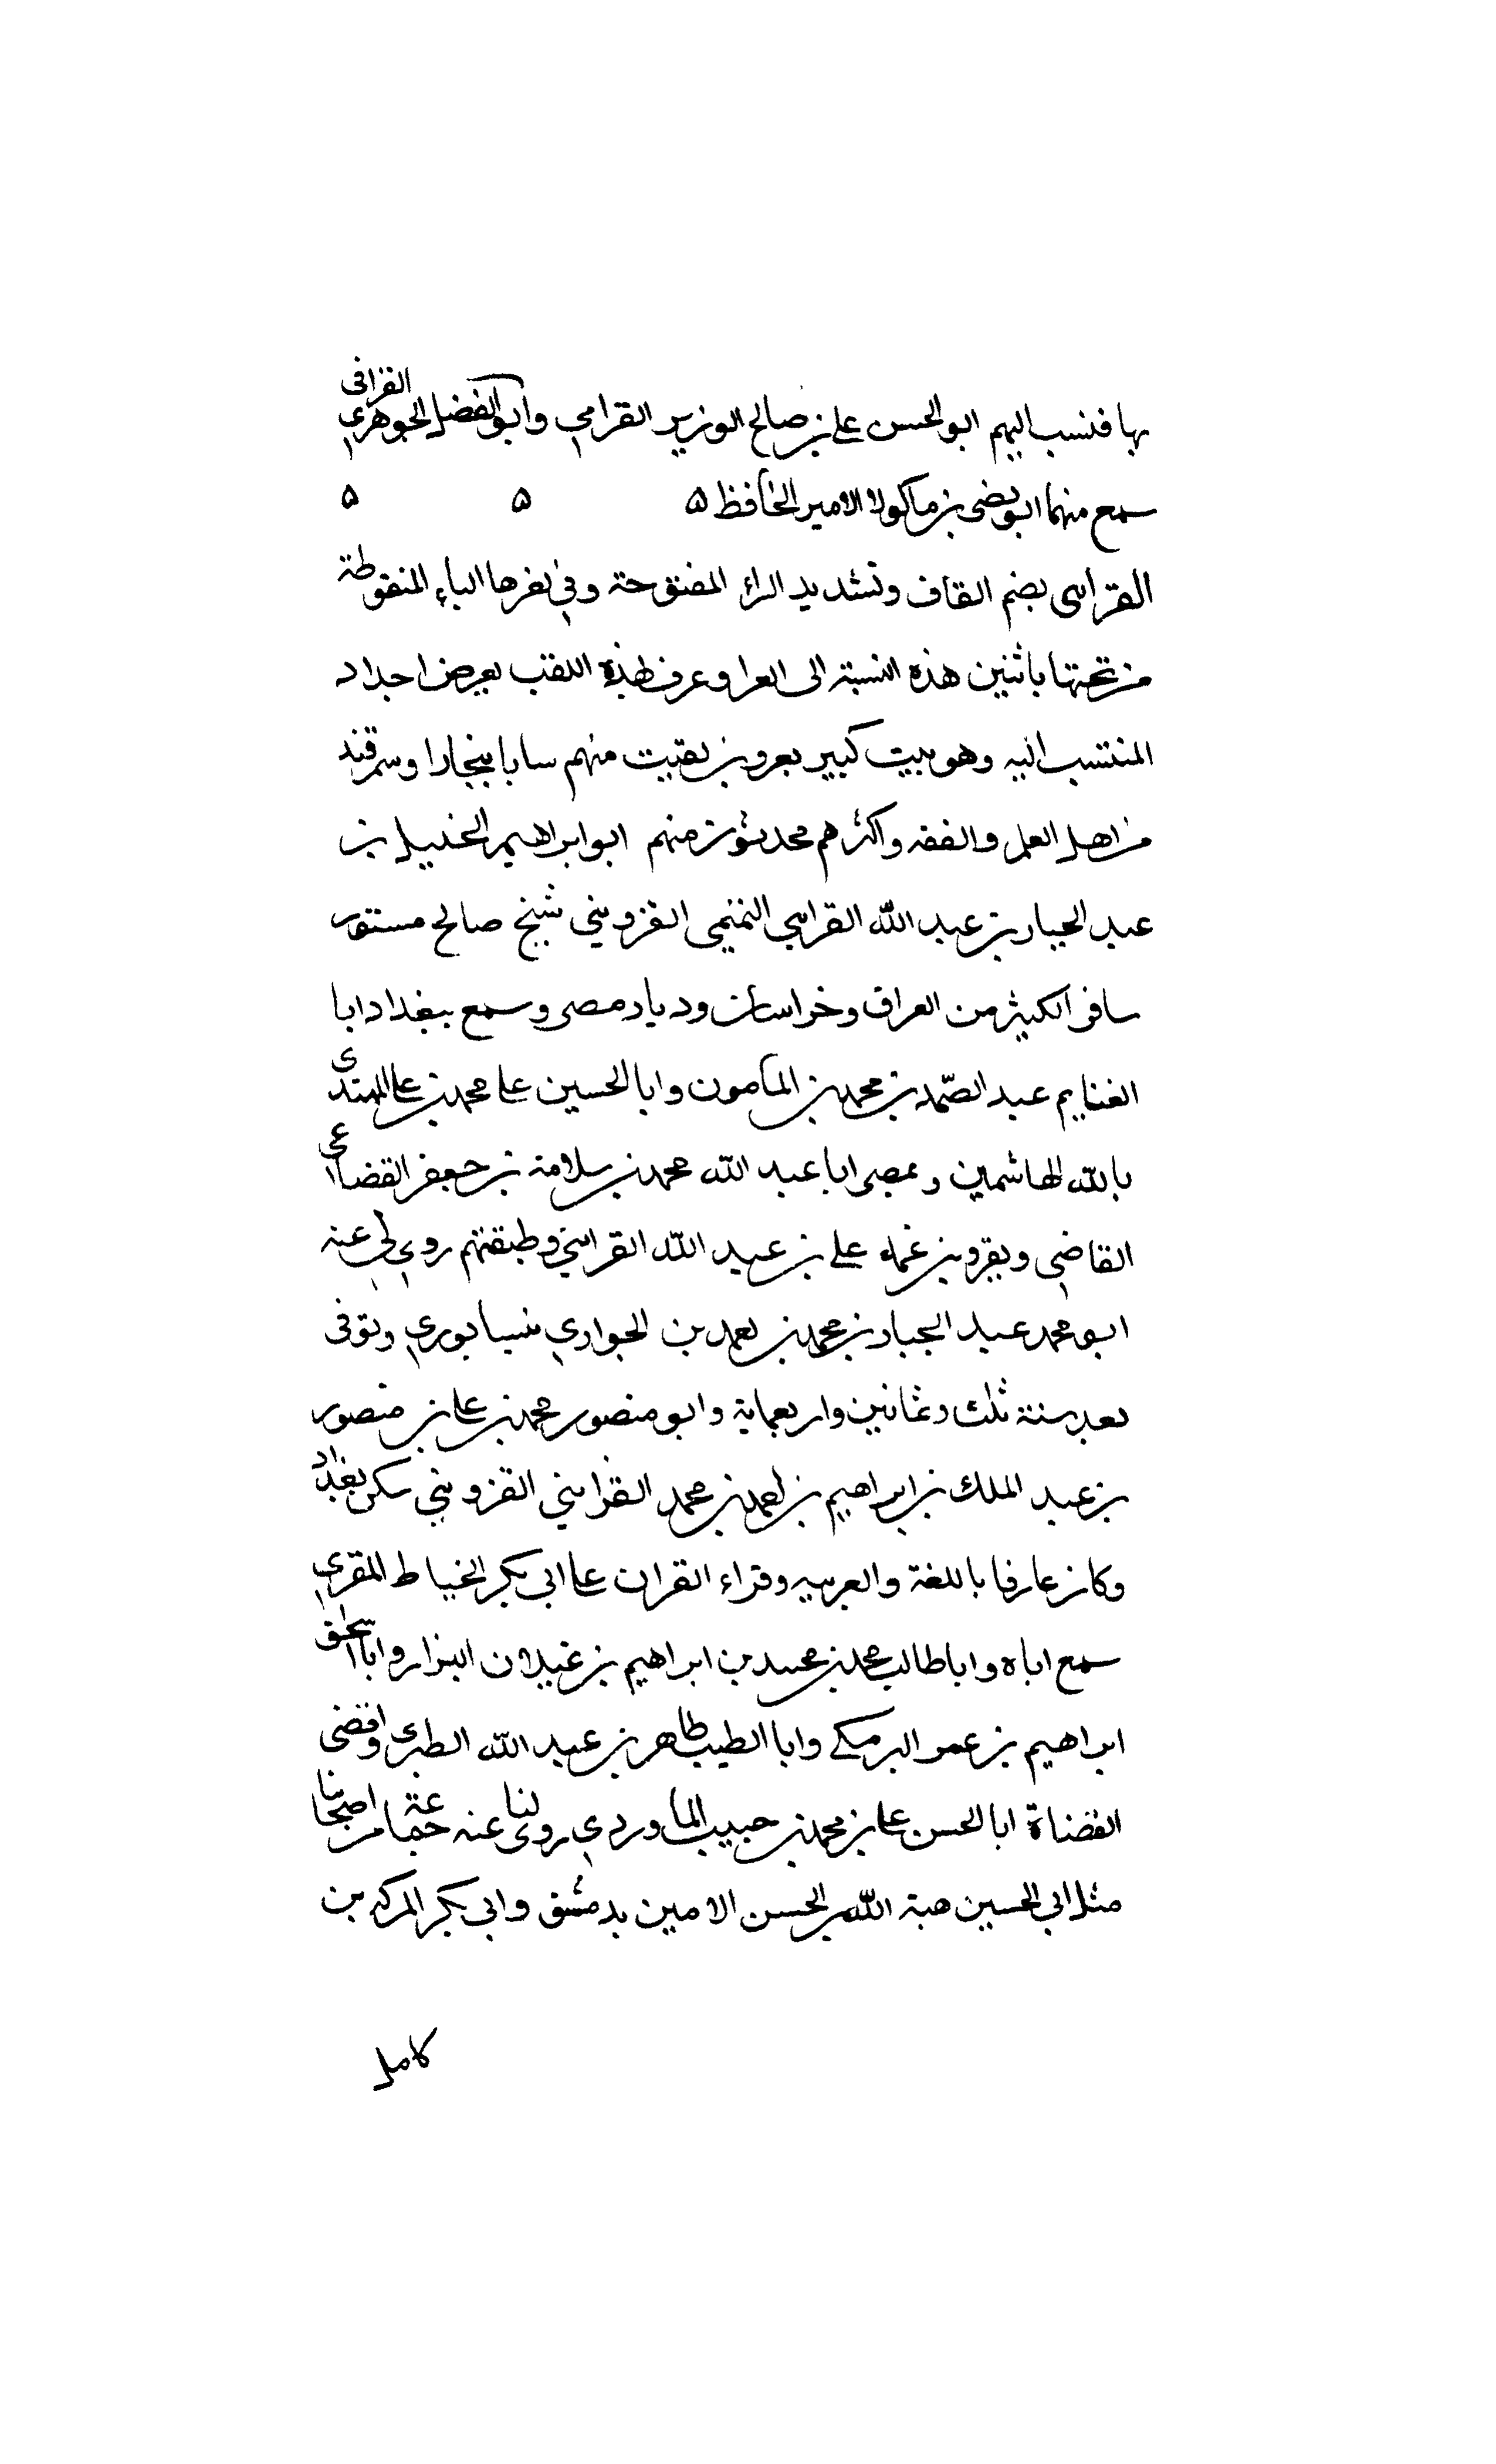 بها فنسب اليهم ابو الحسن علي بن صالح الوزير القرافي وابو الفضل الجوهري القرافي
سمع منهما ابو نصر بن ماكولا الامير الحافظ ٥ ٥ ٥
القرايي بضم القاف وتشديد الراء المفتوحة وفي اخرها الياء المنقوطة
من تحتها باثنين هذه النسبة الى القرا وعرف بهذه اللقب بعض اجداد
المنتسب اليه وهو بيت كبير بقزوين بقيت منهم بقايا ببخارا وسمرقند
من اهل العلم والفقه واكثرهم محدثون منهم ابو ابراهيم الخليل بن
عبد الجبار بن عبد الله القرايي التميمي القزويني شيخ صالح مستور
سافر الكثير من العراق وخراسان وديار مصر وسمع ببغداد ابا
الغنايم عبد الصمد بن محمد بن المامون وابا الحسين علي محمد بن علي المهتدي
بالله الهاشمين وبمصر ابا عبد الله محمد بن سلامة بن جعفر القضاعي
القاضي وبقزوين عمه علي بن عبيد الله القرايي وطبقتهم روى لي عنه
ابو محمد عبد الجبار بن محمد بن احمد بن الخواري بنيسابوري وتوفى
بعد سنة ثلث وثمانين واربعماية وابو منصور محمد بن علي بن منصور
بن عبد الملك بن ابراهيم بن احمد بن محمد القرايني القزويني سكن بغداد
وكان عارفا باللغة والعربيه وقراء القران على ابي بكر الخياط المقري
سمع اباه وابا طالب محمد بن محمد بن ابراهيم بن غيلان البزار وابا اسحق
ابراهيم بن عمر البرمكي وابا الطيب طاهر بن عبد الله الطبري واقضى
القضاة ابا الحسن علي بن محمد بن حبيب الماوردي روى لنا عنه جماعة من اصحابنا
مثل ابي الحسين هبة الله بن الحسن الامين بدمشق وابي بكر المركدين
كامل